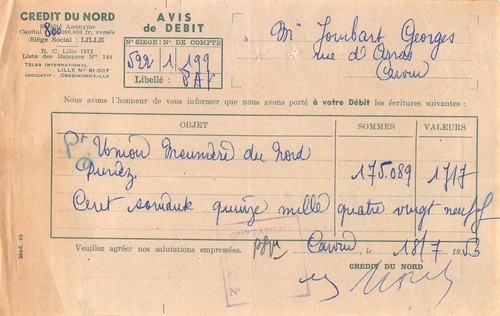 CREDIT DU NORD
Société Anonyme
Capital 800.000.000 fr. versés
Siège Social : LILLE
R. C. Lille 1072
Liste des Banques N° 144
TÉLEX INTERNATIONAL
LILLE N° 81.007
INDICATIF : CREDINORD-LILLE
AVIS
de DEBIT
N° SIÈGE N° DE COMPTE
592 1 199
Libellé :
Mr Joubart Georges
rue d'Arras
Carvin
Nous avons l'honneur de vous informer que nous avons porté à votre Débit les écritures suivantes :
OBJET SOMMES VALEURS
Union Meunière du Nord
Quriez 175.089 17/7
Cent soixante quinze mille quatre vingt neuf
Veuillez agréer nos salutations empressées.
Carvin, le 18/7 1953
CRÉDIT DU NORD
COMPTABILI
N°
Mod. 29